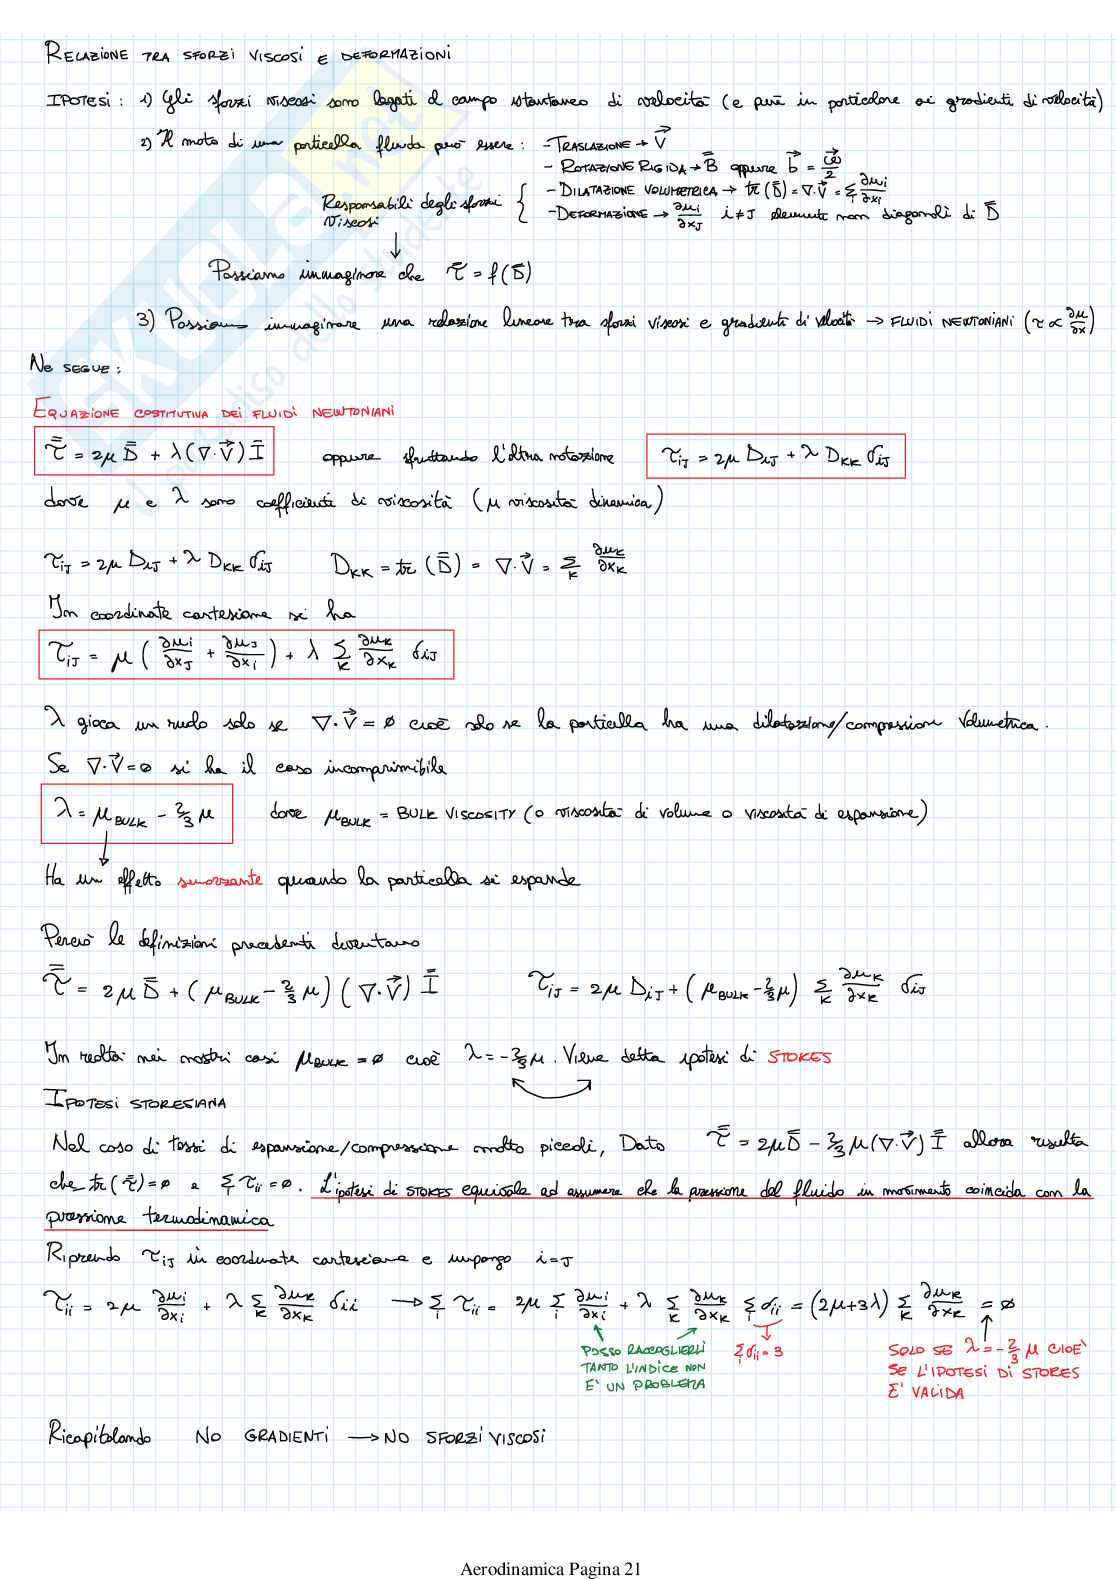 RELAZIONE TRA SFORZI VISCOSI E DEFORMAZIONI
IPOTESI : 1) Gli sforzi viscosi sono legati al campo istantaneo di velocità (e più in particolare ai gradienti di velocità)
2) Il moto di una particella fluida può essere : - TRASLAZIONE → V⃗
- ROTAZIONE RIGIDA → B̿ oppure b⃗ = ω⃗/2
- DILATAZIONE VOLUMETRICA → tr(D̿) = ∇·V⃗ = Σi ∂ui/∂xi
Responsabili degli sforzi viscosi { - DEFORMAZIONE → ∂ui/∂xJ i≠J elementi non diagonali di D̿
↓
Possiamo immaginare che τ̿ = f(D̿)
3) Possiamo immaginare una relazione lineare tra sforzi viscosi e gradienti di velocità → FLUIDI NEWTONIANI (τ ∝ ∂u/∂x)
NE SEGUE :
EQUAZIONE COSTITUTIVA DEI FLUIDI NEWTONIANI
τ̿ = 2μ D̿ + λ(∇·V⃗) I̿ oppure sfruttando l'altra notazione τiJ = 2μ DiJ + λ DKK δiJ
dove μ e λ sono coefficienti di viscosità (μ viscosità dinamica)
τiJ = 2μ DiJ + λ DKK δiJ DKK = tr(D̿) = ∇·V⃗ = ΣK ∂uK/∂xK
In coordinate cartesiane si ha
τiJ = μ (∂ui/∂xJ + ∂uJ/∂xi) + λ ΣK ∂uK/∂xK δiJ
λ gioca un ruolo solo se ∇·V⃗ = ø cioè solo se la particella ha una dilatazione/compressione volumetrica.
Se ∇·V⃗ = ø si ha il caso incomprimibile
λ = μBULK - 2/3 μ dove μBULK = BULK VISCOSITY (o viscosità di volume o viscosità di espansione)
↓
Ha un effetto smorzante quando la particella si espande
Perciò le definizioni precedenti diventano
τ̿ = 2μ D̿ + (μBULK - 2/3 μ) (∇·V⃗) I̿ τiJ = 2μ DiJ + (μBULK - 2/3 μ) ΣK ∂uK/∂xK δiJ
In realtà nei nostri casi μBULK = ø cioè λ = -2/3 μ. Viene detta ipotesi di STOKES
IPOTESI STOKESIANA
Nel caso di tassi di espansione/compressione molto piccoli, Dato τ̿ = 2μ D̿ - 2/3 μ (∇·V⃗) I̿ allora risulta
che tr(τ̿) = ø e Σi τii = ø. L'ipotesi di STOKES equivale ad assumere che la pressione del fluido in movimento coincida con la
pressione termodinamica
Riprendo τiJ in coordinate cartesiane e impongo i=J
τii = 2μ ∂ui/∂xi + λ ΣK ∂uK/∂xK δii → Σi τii = 2μ Σi ∂ui/∂xi + λ ΣK ∂uK/∂xK Σi δii = (2μ+3λ) ΣK ∂uK/∂xK = ø
POSSO RACCOGLIERLI
TANTO L'INDICE NON
E' UN PROBLEMA
Σi δii = 3
SOLO SE λ = -2/3 μ CIOE'
SE L'IPOTESI DI STOKES
E' VALIDA
Ricapitolando NO GRADIENTI → NO SFORZI VISCOSI
Aerodinamica Pagina 21